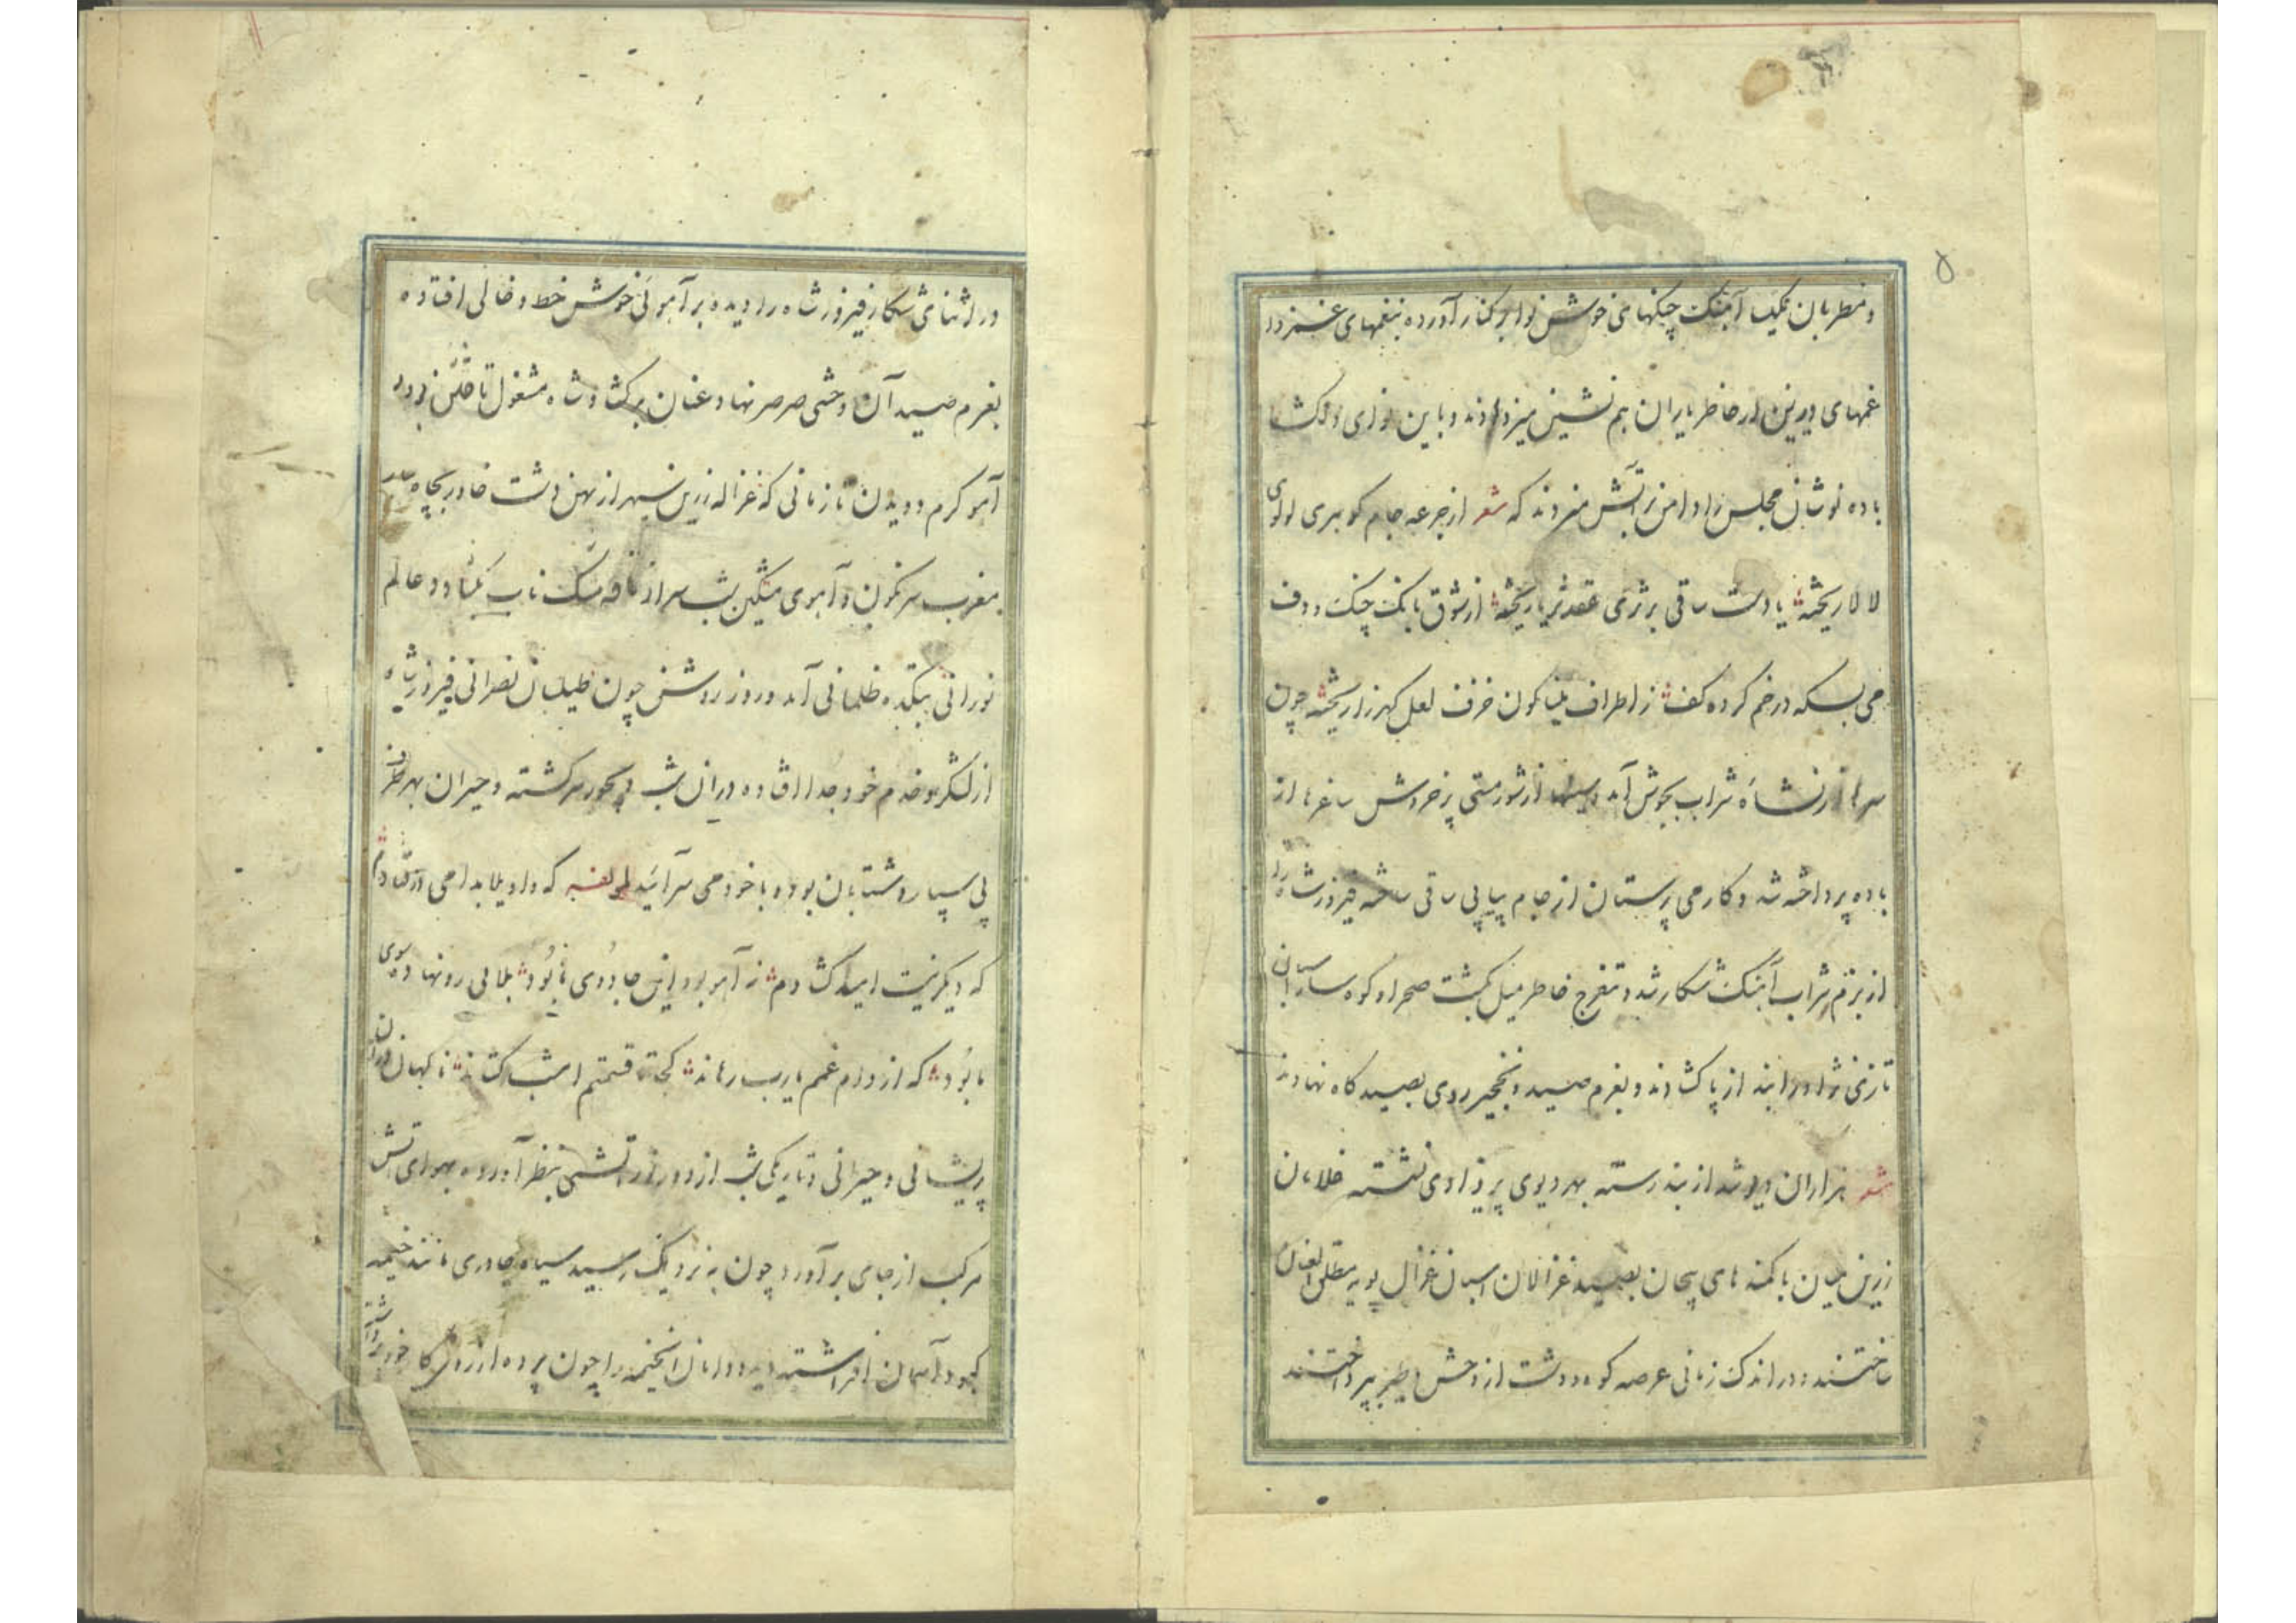 ۵
و مطربان بیک آهنگ چنگهای خوش نوا بر کنار آورده بنغمهای غمزدا
غمهای دیرین از خاطر یاران هم نشین میزدودند و باین نوای دلکشا
باده نوشان مجلس را دامن بر آتش میزدند که شعر از جرعه جام گوهری لولوی
لالا ریخته یا دست ساقی بر ثری عقد ثریا ریخته از شوق بانگ چنگ و دف
می بسکه در خم کرده کف از اطراف مینا کون خزف لعل کهرزا ریخته چون
سرها از نشاه شراب بجوش آمد و از شور مستی پر خروش ساغرها از
باده پرداخته شد و کار می پرستان از جام پیاپی ساقی ساخته فیروز شاه را
از بزم شراب آهنگ شکار شد و تفرج خاطر میل بگشت صحرا و کوهسار
تازی نژاد را بند از پا کشادند و بعزم صید و نخجیر روی بصیدگاه نهادند
شعر هزاران دیو شد از بند رسته بهر دیوی پریزادی نشسته غلامان
زرین میان با کمندهای پیچان بصید غزالان اسبان غزال پویه مطلق العنان
ساختند و در اندک زمانی عرصه کوه و دشت از وحش و طیر پرداختند
در اثنای شکار فیروز شاه را دیده بر آهوئی خوش خط و خالی افتاده
بعزم صید آن وحشی صرصر نهاد عنان برکشاد شاه مشغول تاختن بود و
آهو گرم دویدن تا زمانی که غزاله زرین سپهر از پهن دشت خاور بچاهسار
مغرب سرنگون و آهوی مشکین شب سر از نافه مشک ناب بکشاد و عالم
نورانی بیکده ظلمانی آمد و روز روشن چون طیلسان نصرانی فیروز شاه
از لشکر و خدم خود جدا افتاده در آن شب دیجور سرگشته و حیران بهر طرف
پی سپار و شتابان بوده با خود می سرائید لمولفه که داویلا بدامی در فتادم
که دیگر نیست امید کشادم ز آهو بود این جادوی یا بود بلائی رو نهاده سوی
ما بود که از دام غمم یارب رهاند کجا تا قسمتم امشب کشاند ناگهان در آن
پریشانی و حیرانی و تاریکی شب از دور آتشی بنظر آورده بهوای آتش
مرکب از جای برآورد چون به نزدیک رسید سیاه چادری مانند خیمه
کبود آسمان افراشته دید و دامان انخیمه را چون پرده از روی کار خود برداشته